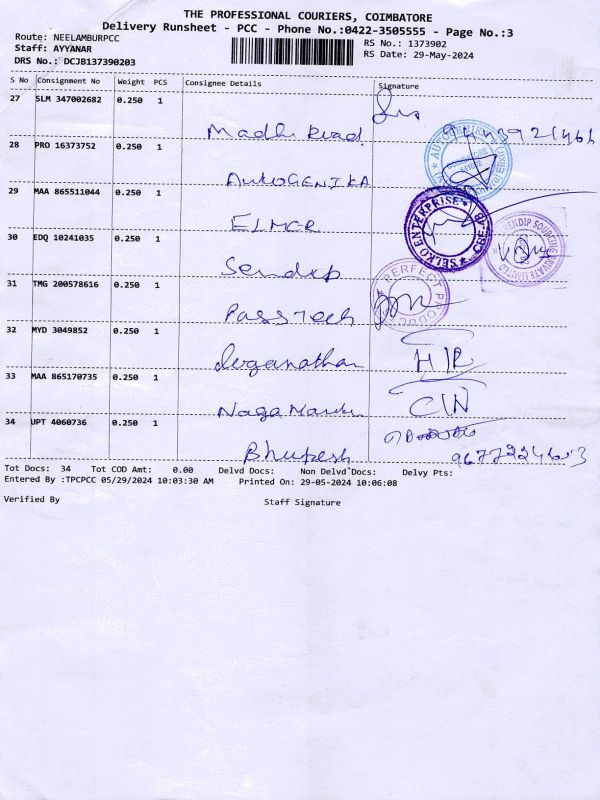 THE PROFESSIONAL COURIERS, COIMBATORE
Delivery Runsheet - PCC - Phone No.:0422-3505555 - Page No.:3
Route: NEELAMBURPCC
RS No.: 1373902
Staff: AYYANAR
RS Date: 29-May-2024
DRS No.: DCJB137390203
S No Consignment No Weight PCS Consignee Details Signature
27 SLM 347002682 0.250 1
Madhu
28 PRO 16373752 0.250 1
AUTOGENIKA
29 MAA 865511044 0.250 1
ELMER
SELKO ENTERPRISE
30 EDQ 10241035 0.250 1
Sendip
SENDIP SOURCING
31 TMG 200578616 0.250 1
PERFECT
Pass Tech
32 MYD 3049852 0.250 1
H/R
33 MAA 865170735 0.250 1
Naga
C/N
34 UPT 4060736 0.250 1
Bhupesh
Tot Docs: 34 Tot COD Amt: 0.00 Delvd Docs: Non Delvd Docs: Delvy Pts:
Entered By :TPCPCC 05/29/2024 10:03:30 AM Printed On: 29-05-2024 10:06:08
Verified By Staff Signature